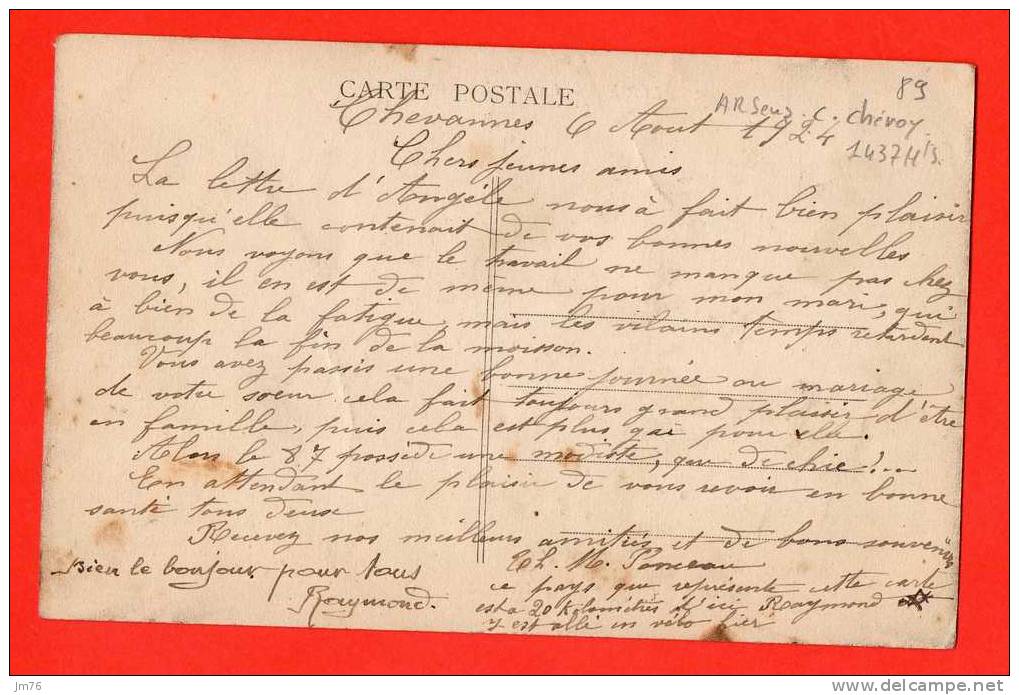 89
CARTE POSTALE
Chevannes 6 Aout 1924
C. Chévoy
1437H
Chers jeunes amis
La lettre d'Angéle nous à fait bien plaisir
puisqu'elle contenait de vos bonnes nouvelles
Nous voyons que le travail ne manque pas chez
vous, il en est de même pour mon mari, qui
à bien de la fatigue, mais les vilains temps retardent
beaucoup la fin de la moisson.
Vous avez passés une bonne journée au mariage
de votre soeur cela fait toujours grand plaisir d'être
en famille, puis cela est plus gai pour elle.
Alors le 87 possède une modiste, que de chic !...
En attendant le plaisir de vous revoir en bonne
santé tous deux
Recevez nos meilleurs amitiés et de bons souvenirs
Bien le bonjour pour tous
Raymond.
Th. M. 
ce pays que représente cette carte
est à 20 kilomètres d'ici Raymond
y est allé en vélo hier
jm76
delcampe.net